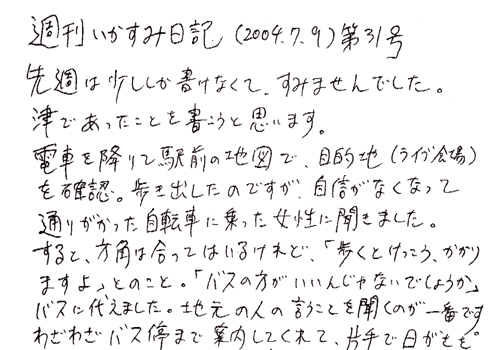 週刊いかすみ日記 (2004.7.9) 第31号
先週は少ししか書けなくて、すみませんでした。
津であったことを書こうと思います。
電車を降りて駅前の地図で、目的地 (ライブ会場)
を確認。歩き出したのですが、自信がなくなって
通りがかった自転車に乗った女性に聞きました。
すると、方角は合ってはいるけれど、「歩くとけっこう、かかり
ますよ」とのこと。「バスの方がいいんじゃないでしょうか」
バスに代えました。地元の人の言うことを聞くのが一番です
わざわざバス停まで案内してくれて、片手で日がさを。